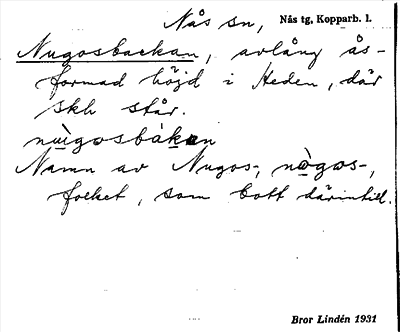 Nås sn, Nås tg, Kopparb. l.
Nugosbackan, avlång ås-
formad höjd i Heden, där
skh står.
nùgosbàkɐn
Namn av Nugos-, nògos-,
folket, som bott därintill.
Bror Lindén 1931